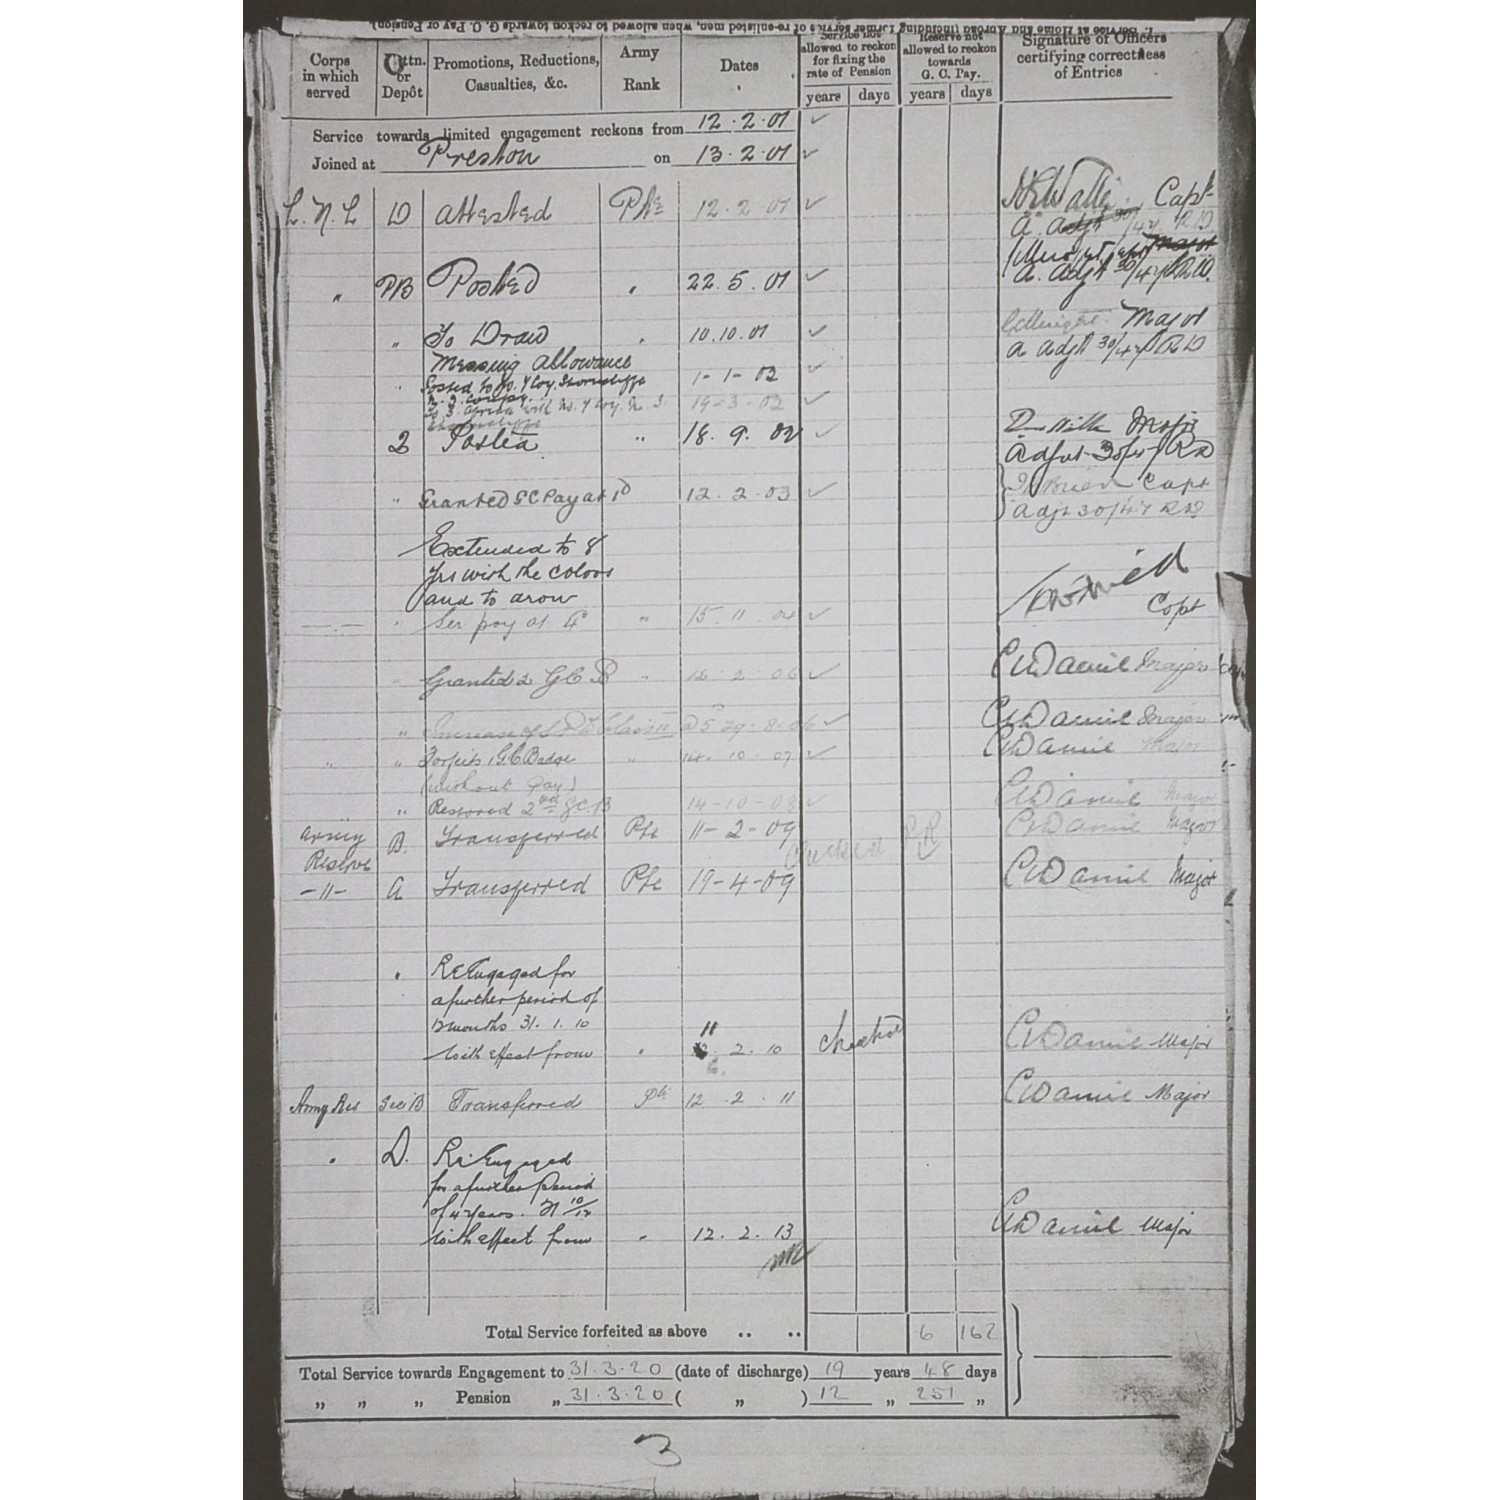 1. Service at Home and Abroad (including former service of re-enlisted men, when allowed to reckon towards G. C. Pay or Pension).
Corps in which served
Battn. or Depôt
Promotions, Reductions, Casualties, &c.
Army Rank
Dates
Service not allowed to reckon for fixing the rate of Pension
years days
Reserve not allowed to reckon towards G. C. Pay.
years days
Signature of Officers certifying correctness of Entries
Service towards limited engagement reckons from 12.2.01
Joined at Preston on 13.2.01
L.N.L D Attested Pte 12.2.01 Capt
A. Adjt 30/47 RD
" PB Posted " 22.5.01
A. Adjt 30/47 RD.
" To Draw " 10.10.01 Major
Messing Allowance A Adjt 30/47 RD
" Posted to No. Y Coy. Shorncliffe 1-1-02
19-3-02
2 Posted " 18.9.02 Major
Adjut 30/47 RD
" Granted GC Pay at 1d 12.2.03 Capt
Adjt 30/47 RD
Extended to 8
yrs with the colors
and to draw
—"— " Ser pay at " 15.11.04 Capt
" Granted 2 GCB " 12.2.06 C W Daniel Major
" Increase of Class II @ 5 29-8-06 C W Daniel Major
" " Forfeits 1 GC Badge " 14-10-07 C W Daniel Major
(without pay)
" Restored 2nd GCB 14-10-08 C W Daniel Major
Army B. Transferred Pte 11-2-09 C W Daniel Major
Reserve Checked
-11- A Transferred Pte 19-4-09 C W Daniel Major
" Re Engaged for
a further period of
12 months 31.1.10 11
with effect from " 2.10 Checked C W Daniel Major
Army Res Sec B Transferred Pte 12.2.11 C W Daniel Major
" D. Re Engaged
for a further Period
of 4 years. 10/12
with effect from " 12.2.13 C W Daniel Major
Total Service forfeited as above .. .. 6 162
Total Service towards Engagement to 31.3.20 (date of discharge) 19 years 48 days
" " " Pension " 31.3.20 ( " ) 12 " 251 "
3